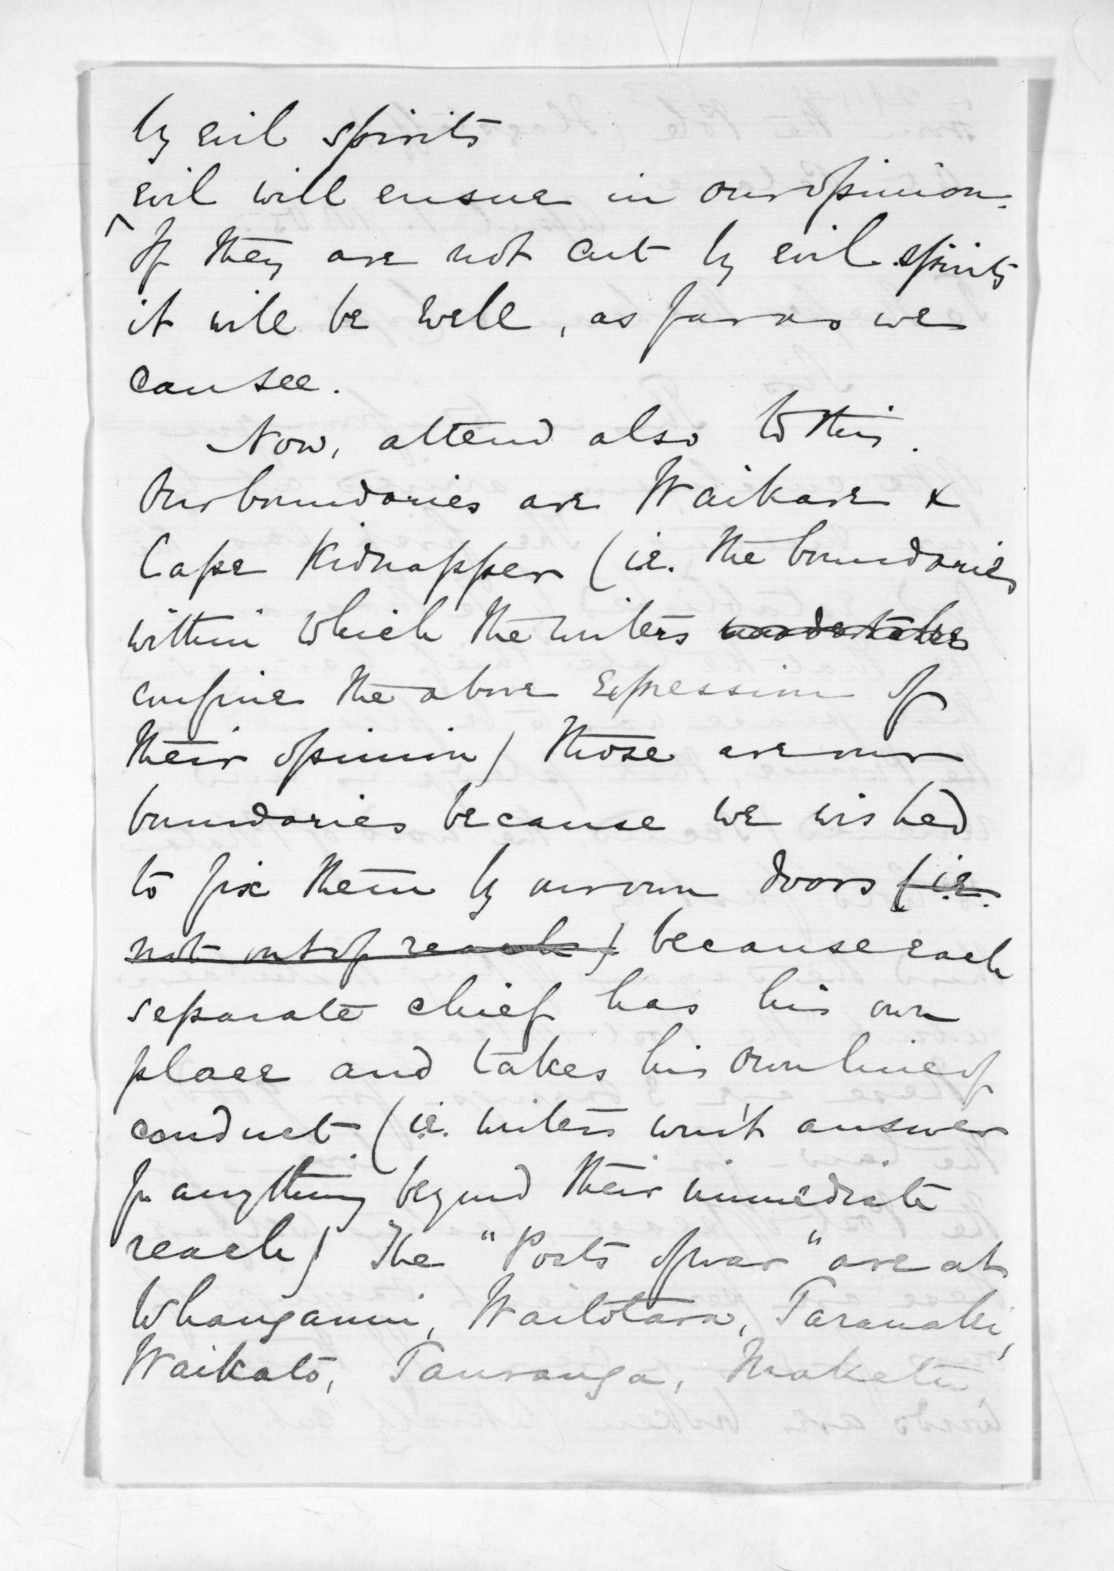 by evil spirits
evil will ensue in our opinion.
^ If they are not cut by evil spirits
it will be well, as far as we
can see.
Now, attend also to this.
Our boundaries are Waikare &
Cape Kidnapper (i.e. the boundaries
within which the writers undertake
confine the above expression of
their opinion) those are our
boundaries because we wished
to fix them by our own doors (i.e.
not out of reach) because each
separate chief has his own
place and takes his own line of
conduct (i.e. writers won't answer
for anything beyond their immediate
reach) The "Posts of war" are at
Whanganui, Waitotara, Taranaki,
Waikato, Tauranga, Maketu,